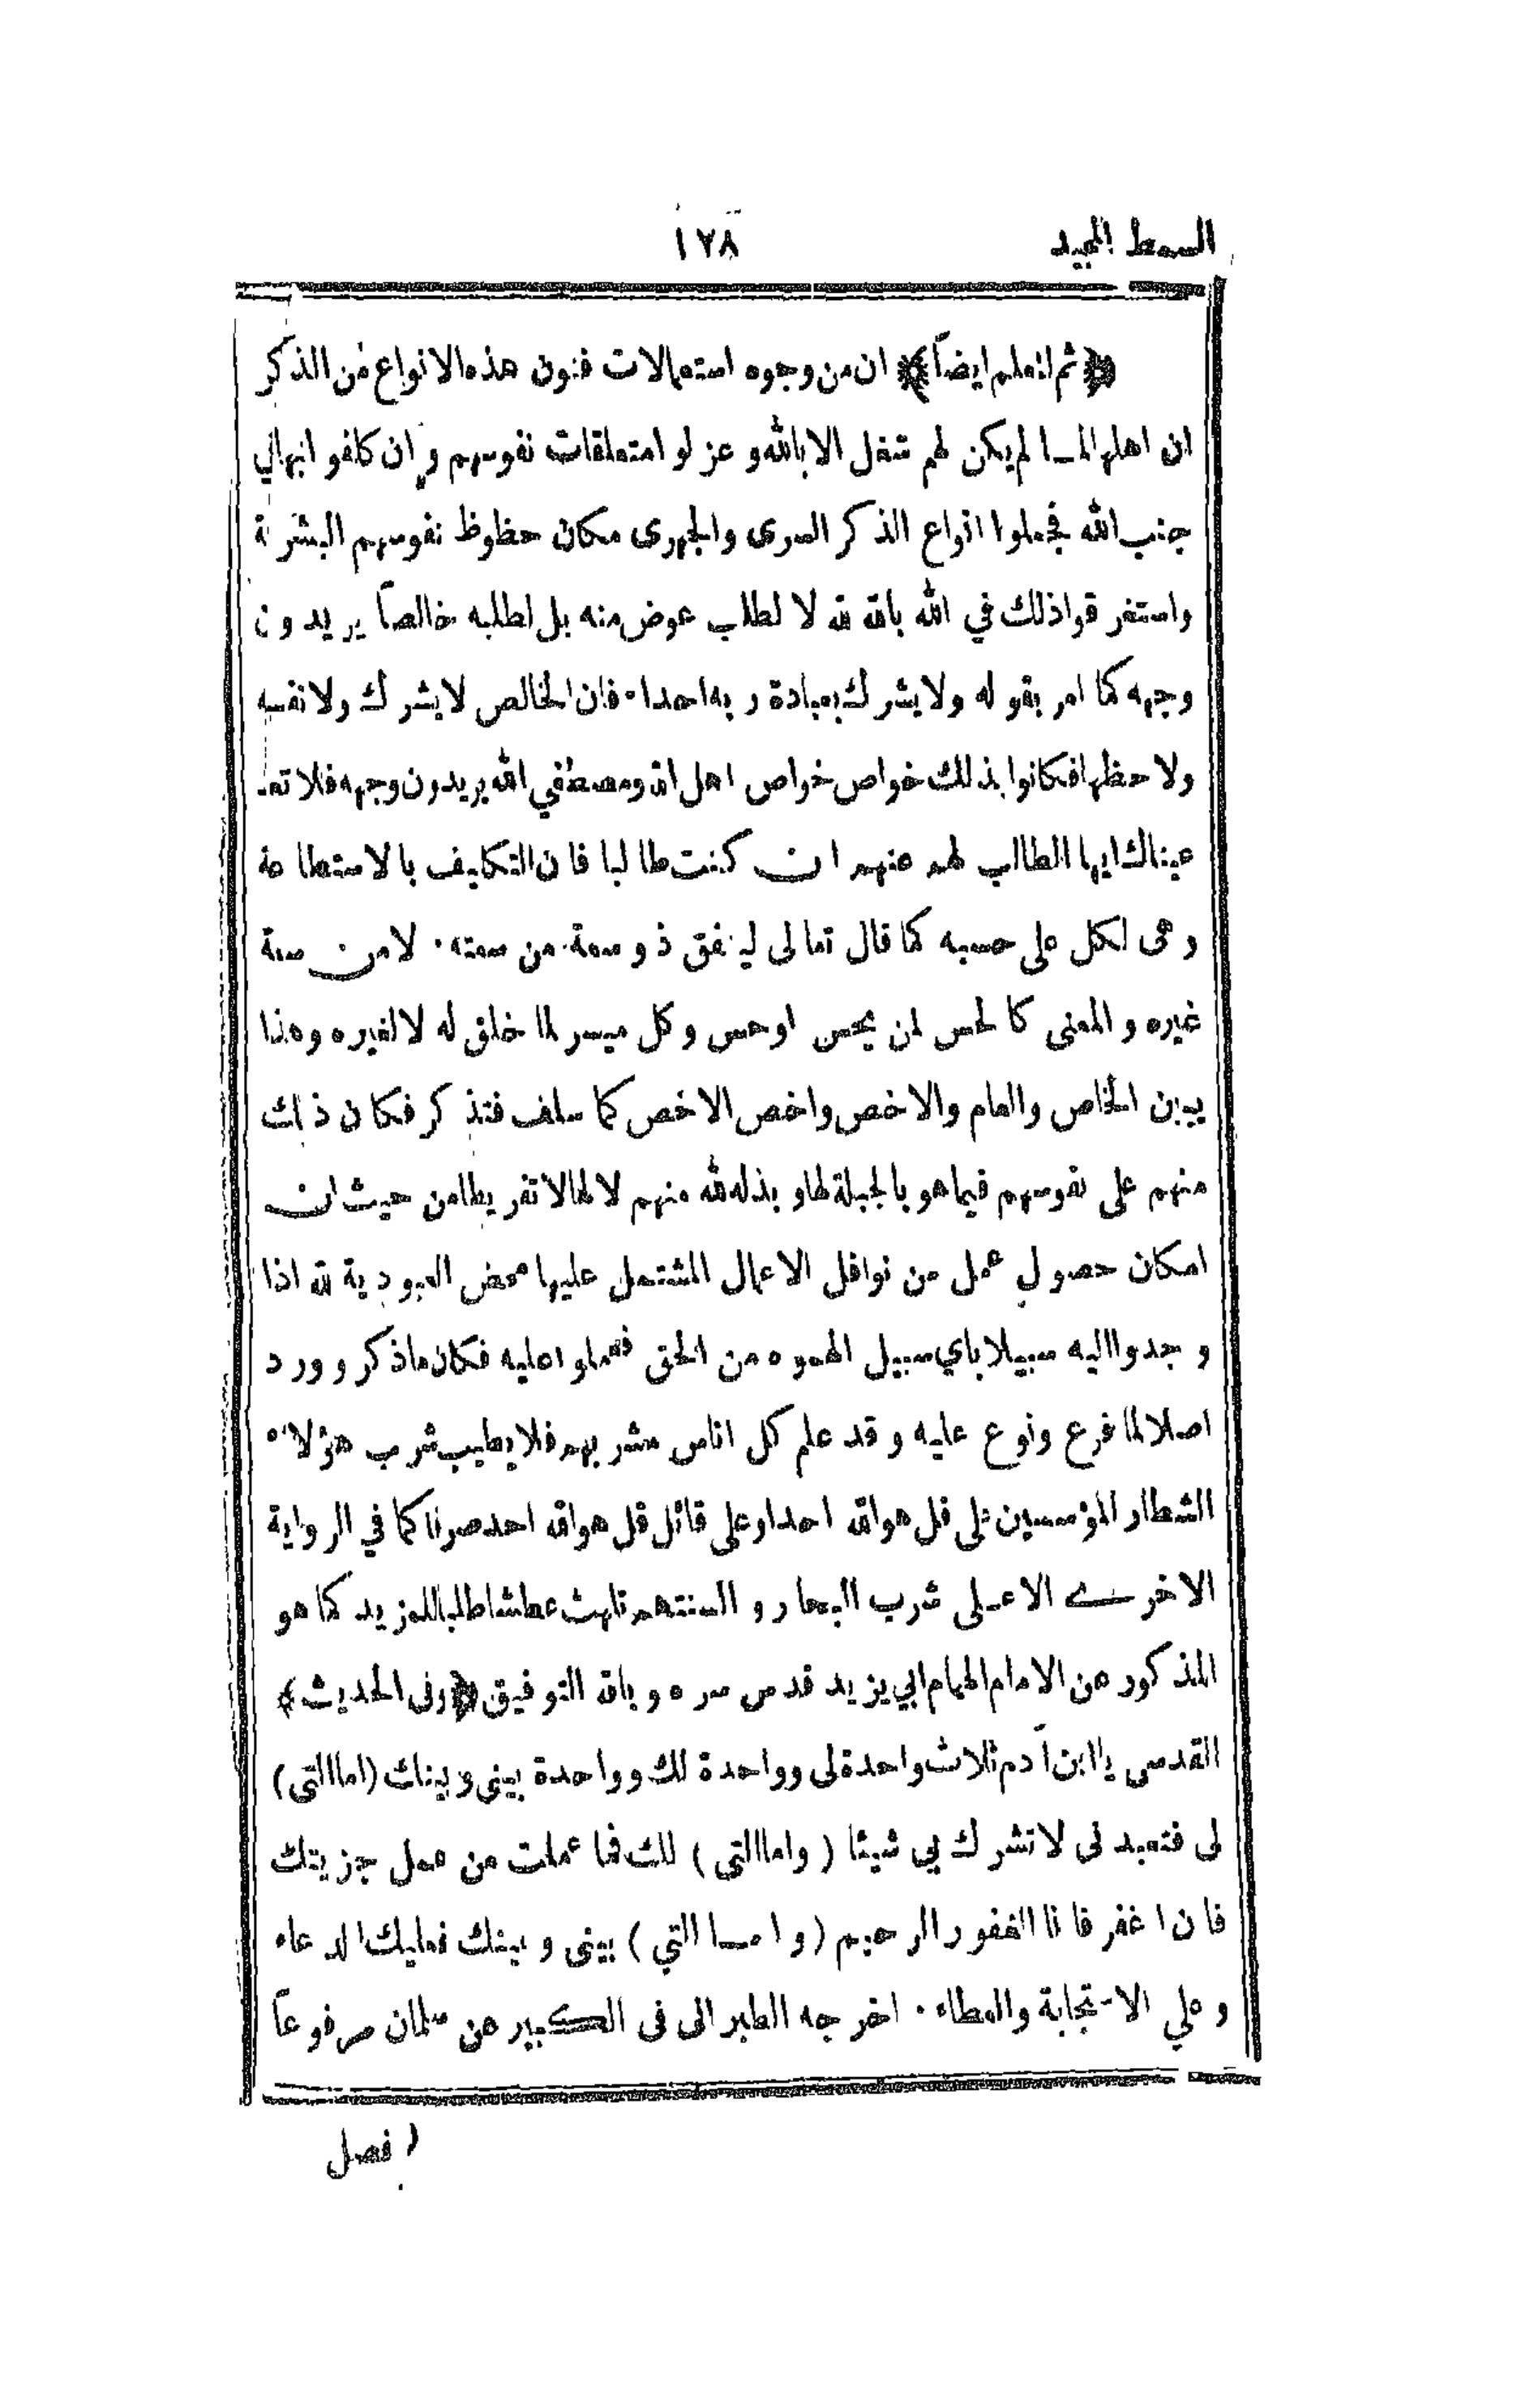 السمط المجيد ١٧٨
﴿ثم لتعلم ايضاً﴾ ان من وجوه استعمالات فنون هذه الانواع من الذكر
ان اهلها لمـا لم يكن لهم شغل الا بالله و عزلوا متعلقات نفوسهم و ان كلفوا بها في
جنب الله فجعلوا انواع الذكر السرى والجهرى مكان حظوظ نفوسهم البشرية
واستغرقوا ذلك في الله بالله لله لا لطلب عوض منه بل لطلبه خالصاً يريدون
وجهه كما امر بقوله ولا يشرك بعبادة ربه احدا ٠ فان الخالص لا يشرك ولا نفسه
ولا حظها فكانوا بذلك خواص خواص اهل الله ومصطفي الله يريدون وجهه فلا تعد
عيناك ايها الطالب لهم عنهم ان كنت طالبا فان التكليف بالاستطاعة
وهى لكل على حسبه كما قال تعالى لينفق ذو سعة من سعته ٠ لا من سعة
غيره والمعنى كالحس لمن يحس اوحس وكل ميسر لما خلق له لا لغيره وهذا
يبين الخاص والعام والاخص واخص الاخص كما سلف فتذكر فكان ذلك
منهم على نفوسهم فيما هو بالجبلة لها و بذله لله منهم لا لها لا تفريطا من حيث ان
امكان حصول عمل من نوافل الاعمال المشتمل عليها محض العبودية لله اذا
وجدوا اليه سبيلا باي سبيل الهموه من الحق فعملوا عليه فكان ماذكر و ورد
اصلا لما فرع ونوع عليه و قد علم كل اناس مشربهم فلا يطيب شرب هؤلاء
الشطار المؤسسين على قل هوالله احد او على قائل قل هوالله احد صرفا كما في الرواية
الاخرى الا على شرب البحار و السنتهم تلهث عطشا طلبا للمزيد كما هو
المذكور عن الامام الهمام ابي يزيد قدس سره و بالله التوفيق ﴿وفى الحديث﴾
القدسى يا ابن آدم ثلاث واحدة لى وواحدة لك وواحدة بينى وبينك (اما التى)
لى فتعبد نى لا تشرك بي شيئا (واما التى) لك فما عملت من عمل جزيتك
فان اغفر فانا الغفور الرحيم (وامـا التي) بينى وبينك فعليك الدعاء
وعلي الاستجابة والعطاء ٠ اخرجه الطبرانى فى الكبير عن سلمان مرفوعاً
فصل